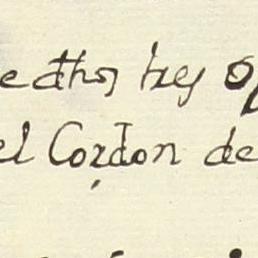 e dhos hey o
el Cordon de